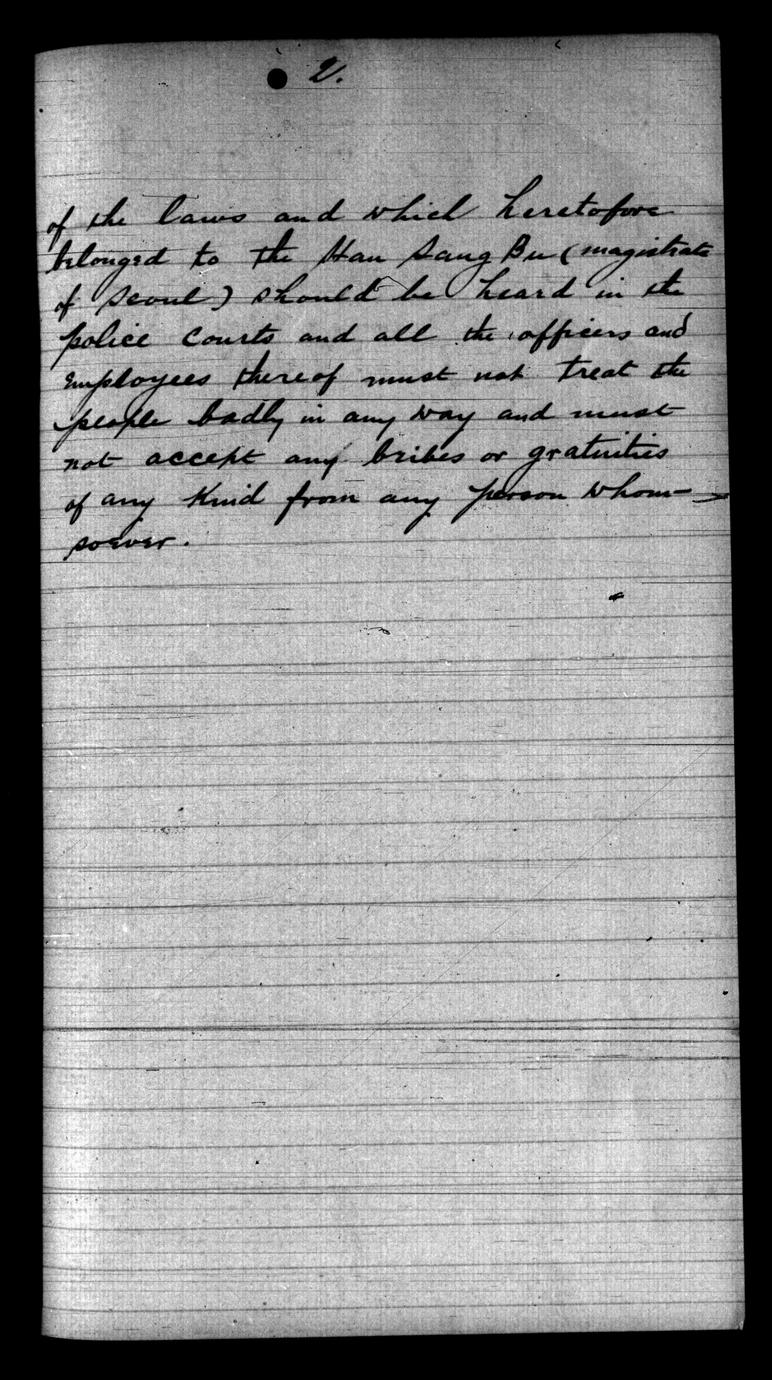 2.
of the laws and which heretofore
belonged to the Han Sang Bu (magistrate
of Seoul) should be heard in the
police courts and all the officers and
employees thereof must not treat the
people badly in any way and must
not accept any bribes or gratuities
of any kind from any person whom-
soever.